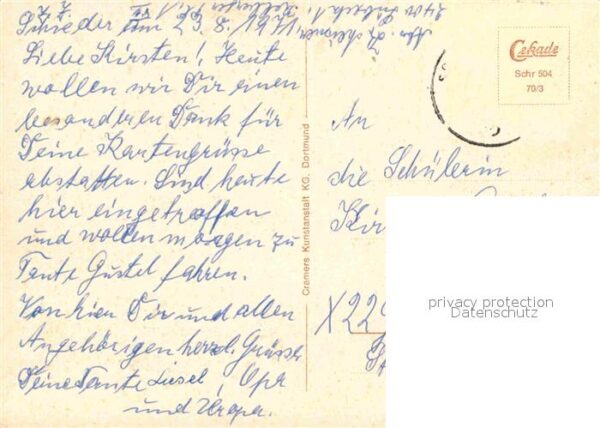 Schieder am 23. 8. 1971
Liebe Kirsten! Heute
wollen wir Dir einen
besonderen Dank für
Deine Kartengrüsse
abstatten. Sind heute
hier eingetroffen
und wollen morgen zu
Tante Gustel fahren.
Von hier Dir und allen
Angehörigen herzl. Grüsse
Deine Tante Liesel, Opa
und Uropa.
Cremers Kunstanstalt KG, Dortmund
Cekade
Schr 504
70/3
An
die Schülerin
Kir
X22
privacy protection
Datenschutz